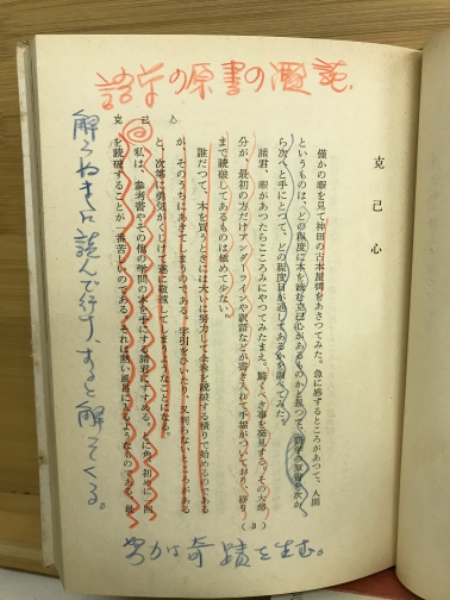 語学の原書の濫読.
克己心
僅かの暇を見て神田の古本屋街をあさつてみた。急に感ずるところがあつて、人間
というものは、どの程度に本を読む克己心があるものかと思つて、語学の原書を次か
ら次へと手にとつて、どの程度目が通してあるかを調べてみた。
諸君、暇があつたらこころみにやつてみたまえ。驚くべき事を発見する。その大部
分が、最初の方だけアンダーラインや訳語などが書き入れて手垢がついており、終り
まで読破してあるものは極めて少ない。
誰だつて、本を買うときには大いに努力して全巻を読破する積りで始めるのである
が、そのうちにあきてしまうのである。字引をひいたり、又判らないところがある
と、次第に勇気がくじけて遂に敬遠してしまうようなことになる。
私は、参考書やその他の学問の本を手にする諸君にすすめる。とに角、初めに一回
を読破することが一番苦しいのである。それは熱い風呂に入るようなものである。最
克己心
( 3 )
解らぬまに読んで行す、すると解ってくる。
努力は奇蹟を生む。